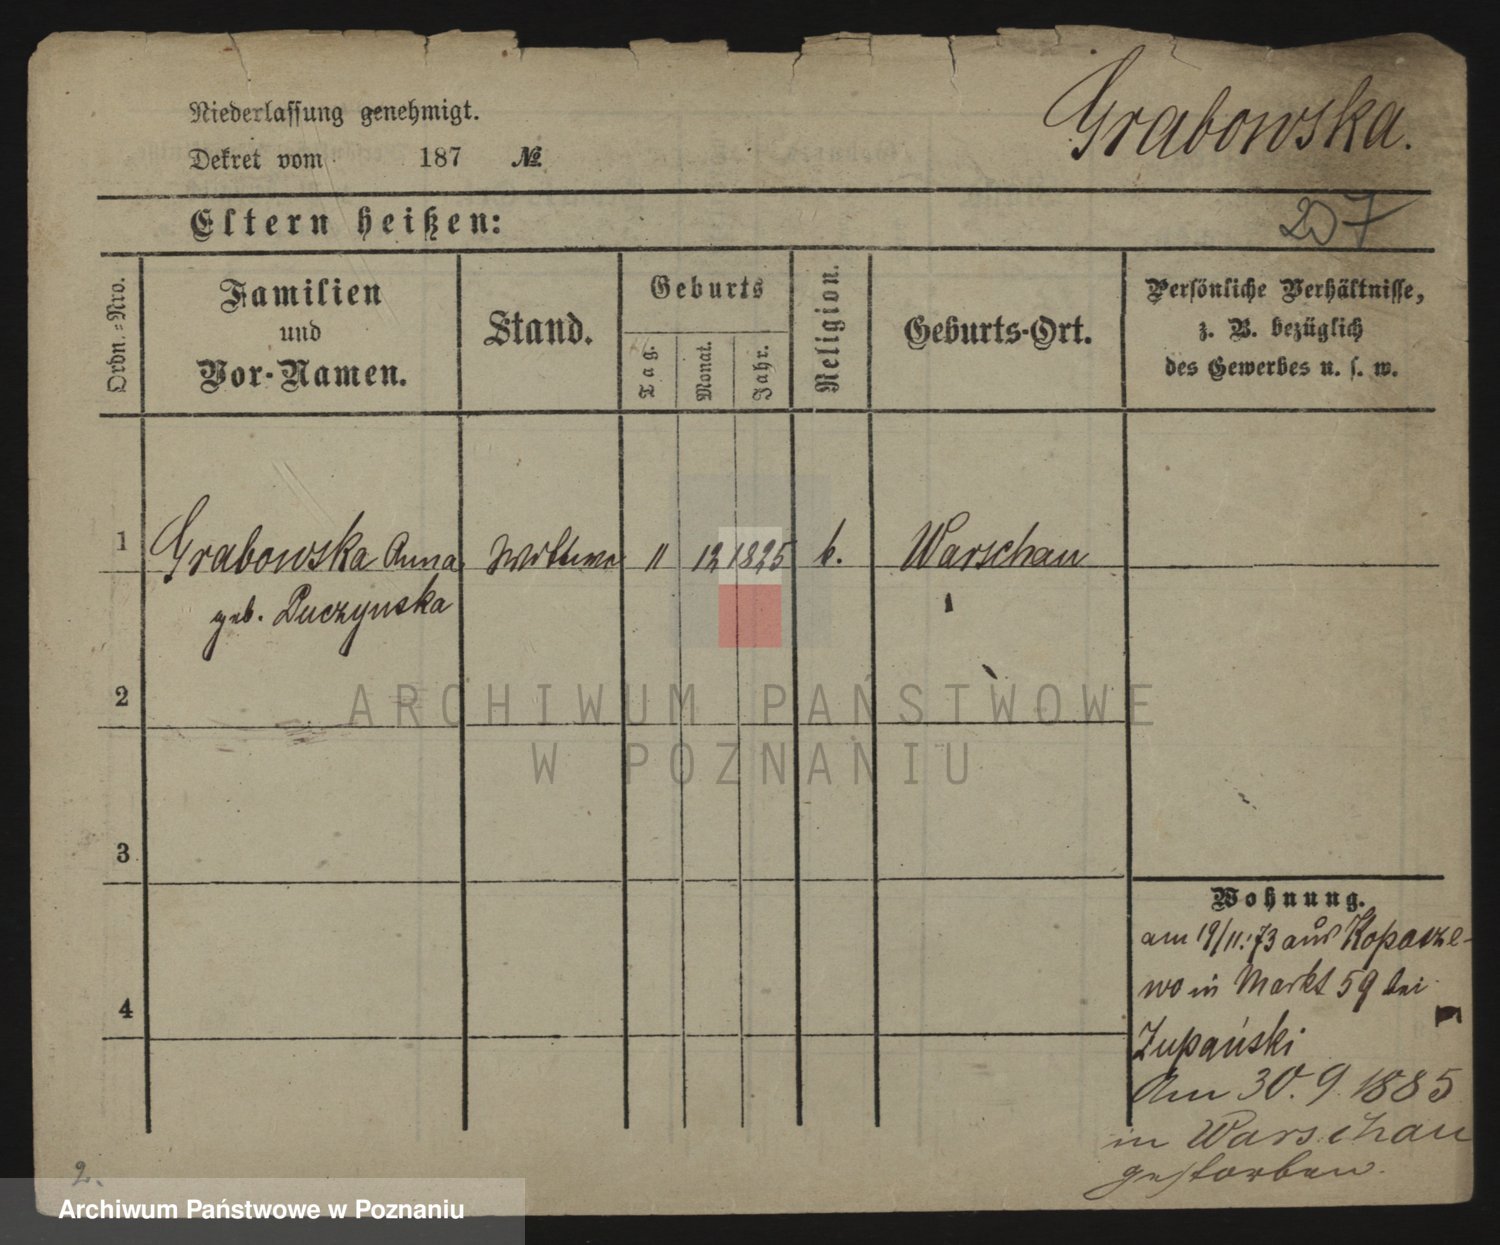 Niederlassung genehmigt.
Grabowska.
Dekret vom 187 №
Eltern heißen:
257
Ordn.-Nro.
Familien
und
Vor-Namen.
Stand.
Geburts
Tag.
Monat.
Jahr.
Religion.
Geburts-Ort.
Persönliche Verhältnisse,
z. B. bezüglich
des Gewerbes u. s. w.
1 Grabowska Anna Wittwe 11 12 1825 k. Warschau
geb. Puczynska
2
ARCHIWUM PAŃSTWOWE
W POZNANIU
3
Wohnung.
am 19/11.73 aus Kopasze-
wo in Markt 59 bei
4
Zupański
Am 30.9.1885
in Warschau
gestorben.
2.
Archiwum Państwowe w Poznaniu